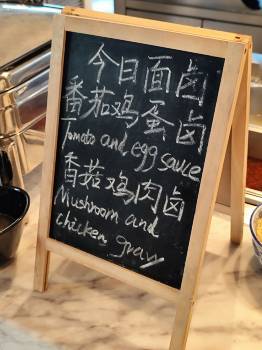 今日面卤
番茄鸡蛋卤
Tomato and egg sauce
香菇鸡肉卤
Mushroom and
chicken gravy